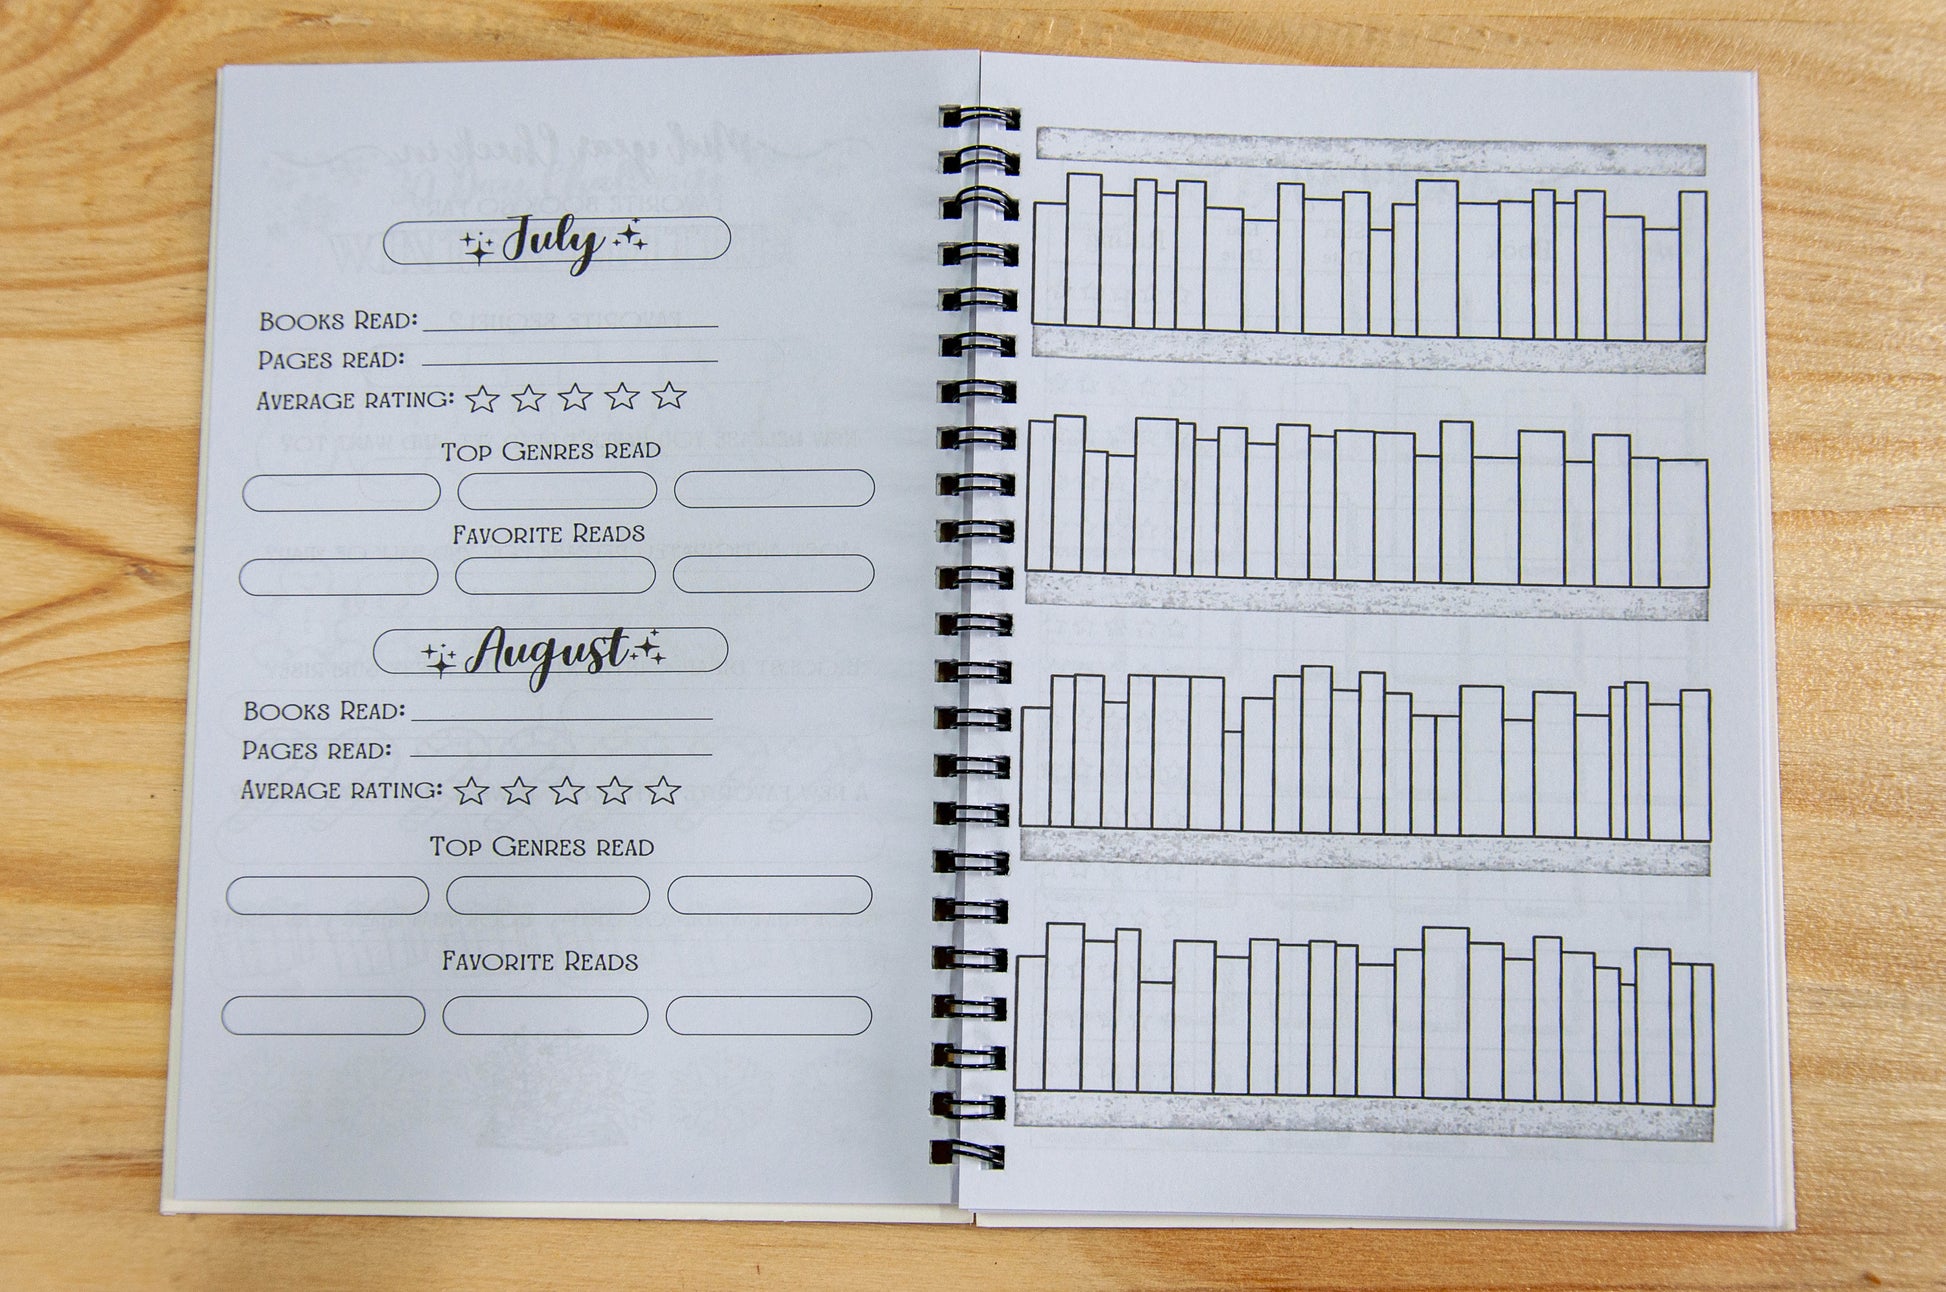 July
Books Read:
Pages read:
Average rating:
Top Genres read
Favorite Reads
August
Books Read:
Pages read:
Average rating:
Top Genres read
Favorite Reads